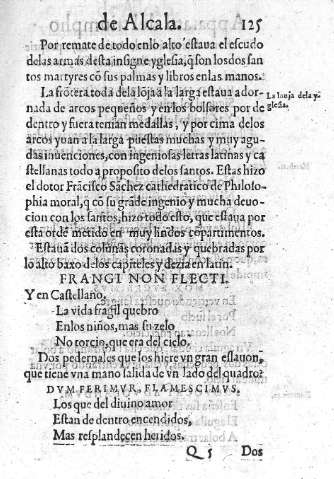 de Alcala. 125
Por remate de todo enlo alto estaua el escudo
de las armas desta insigne yglesia, q̃ son los dos san
tos martyres cõ sus palmas y libros en las manos.
La frõtera toda dela lõja à la larga estaua ador-
nada de arcos pequeños y en los bolsores por de
dentro y fuera tenian medallas, y por cima delos
arcos yuan a la larga puestas muchas y muy agu-
das inuenciones, con ingeniosas letras latinas y ca
stellanas todo a proposito delos santos. Estas hizo
el dotor Frãcisco Sãchez cathedratico de Philoso-
phia moral, q̃ cõ su grãde ingenio y mucha deuo-
cion con los santos, hizo todo esto, que estaua por
esta ordẽ metido en muy lindos cõpartimentos.
Estauã dos colunas coronadas y quebradas por
lo alto baxo delos capiteles y dezia en latin.
FRANGI NON FLECTI.
Y en Castellano.
La vida fragil quebro
Enlos niños, mas su zelo
No torcio, que era del cielo.
Dos pedernales que los hiere vn gran eslauon,
que tiene vna mano salida de vn lado del quadro:
DVM FERIMVR, FLAMESCIMVS.
Los que del diuino amor
Estan de dentro encendidos,
Mas resplandecen heridos.
Q 5 Dos
La lonja dela y-
glesia.